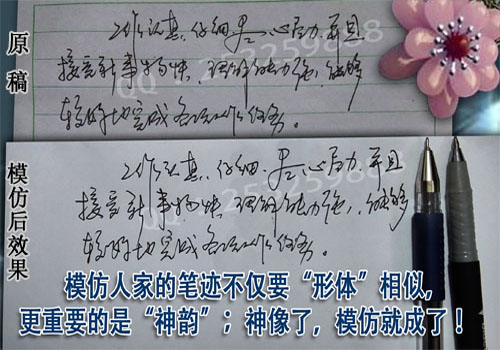 原稿
工作认真、仔细、界心尽力、并且
接受新事物快,理解能力强,能够
较好地完成各项工作任务。
QQ:253259888
模仿后效果
工作认真、仔细、尽心尽力、并且
接受新事物快,理解能力强,能够
较好地完成各项工作任务。
模仿人家的笔迹不仅要“形体”相似,
更重要的是“神韵”;神像了,模仿就成了!